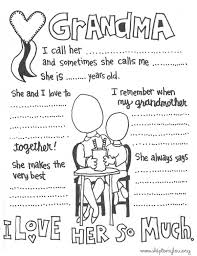 GRANDMA
I call her
and sometimes she calls me
She is ...... years old.
She and I love to
together!
She makes the
very best
I remember when
my grandmother
She always says
I LOVE HER SO MUCH.
www.skiptomylou.org